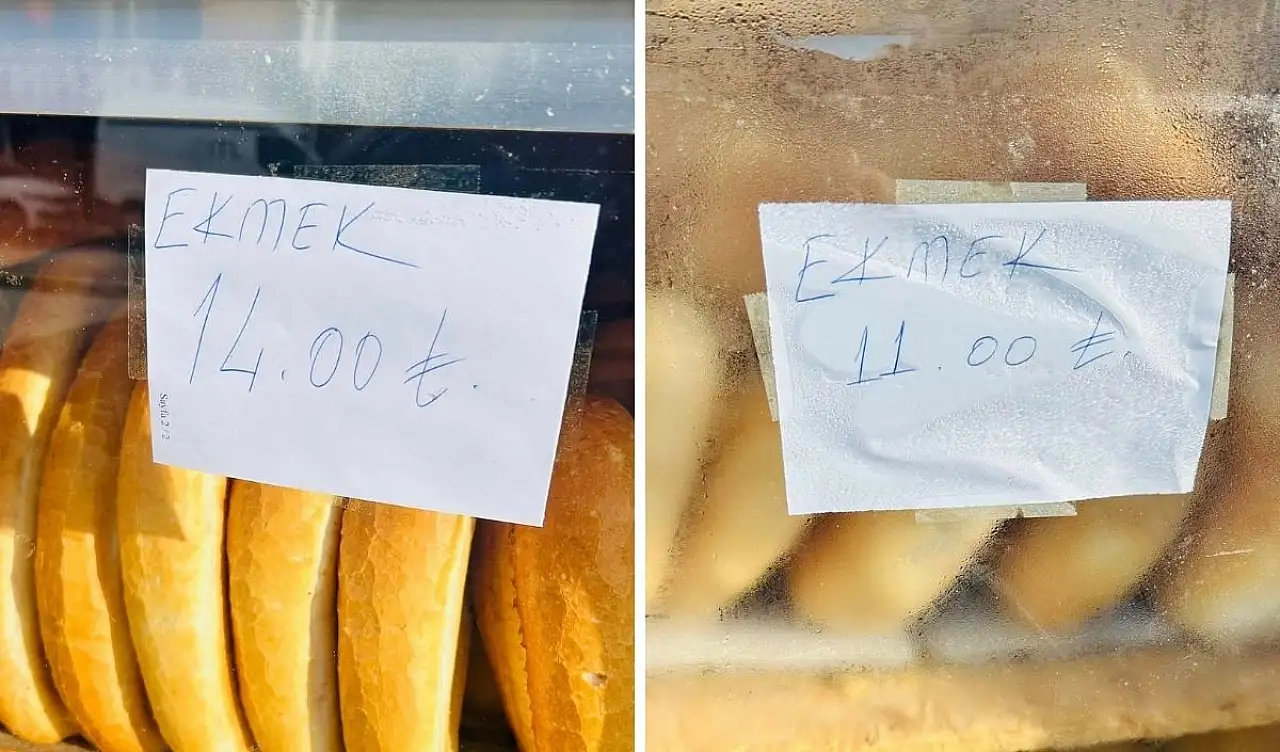 EKMEK
14.00 ₺.
Sayfa 2/2
EKMEK
11.00 ₺.